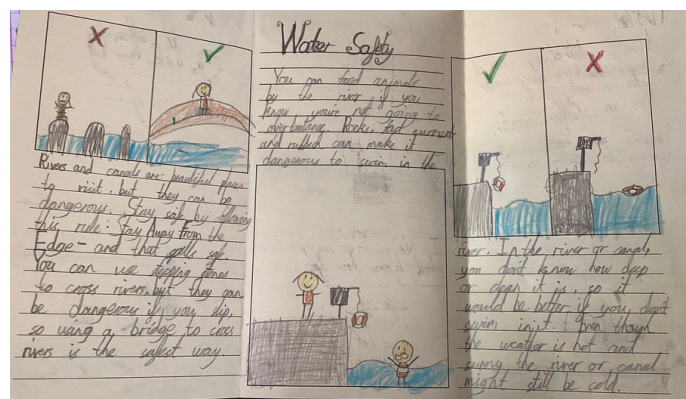 Water Safety
Rivers and canals are beautiful places
to visit. but they can be
dangerous. Stay safe by following
this rule: Stay Away From the
Edge - and that spells safe.
You can use stepping stones
to cross rivers, but they can
be dangerous if you slip,
so using a bridge to cross
rivers is the safest way.
You can feed animals
by the river if you
know you're not going to
overbalance. Rocks, fast current
and rubbish can make it
dangerous to swim in the
river. In the river or canal,
you don't know how deep
or open it is, so it
would be better if you don't
swim in it. Even though
the weather is hot and
sunny the river or canal
might still be cold.